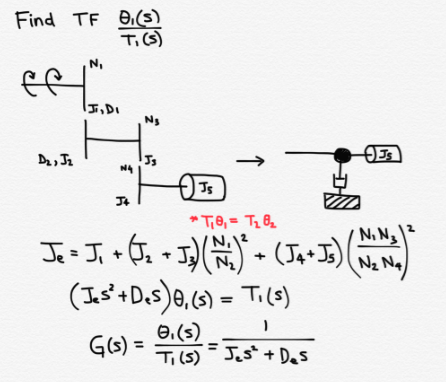 Find TF θ₁(s)/T₁(s)
N₁
J₁,D₁
N₃
D₂,J₂
J₃
N₄
J₄
J₅
→
J₅
*T₁θ₁ = T₂θ₂
Jₑ = J₁ + (J₂ + J₃)(N₁/N₂)² + (J₄+J₅)(N₁N₃/N₂N₄)²
(Jₑs²+Dₑs)θ₁(s) = T₁(s)
G(s) = θ₁(s)/T₁(s) = 1/Jₑs²+Dₑs